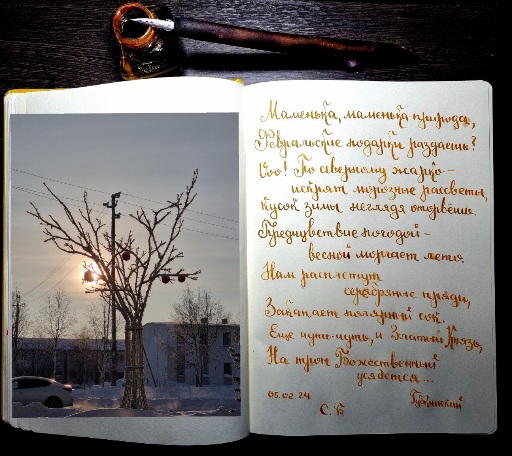 Маменька, маменька природа,
Февральские подарки раздаешь?
Ооо! По северному жарко –
искрят морозные рассветы,
Кусок зимы неглядя оторвёшь.
Предчувствие погодой –
весной моргает лето.
Нам расплетут
серебряные пряди,
Закапает полярный сок.
Еще чуть-чуть, и Златой Князь,
На трон Божественный
усядется...
05.02.24
С. Б